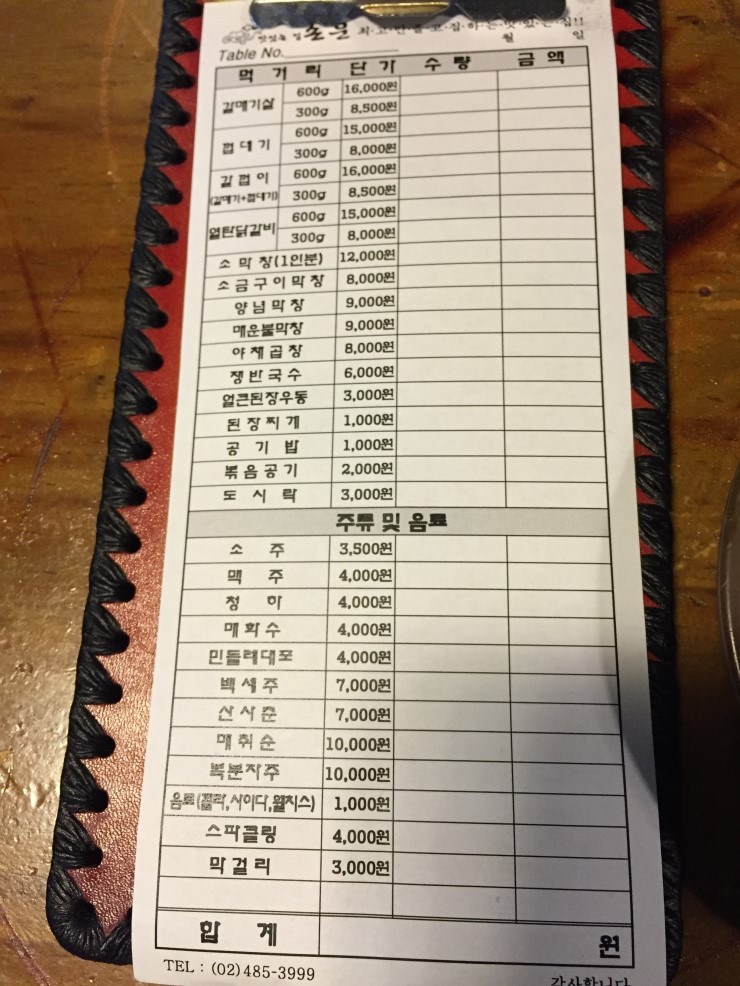 맛있는 집 소문 최·고·만·을·고·집·하·는·맛·있·는·집!!
Table No. 월 일
먹 거 리 단 가 수 량 금 액
갈매기살 600g 16,000원
300g 8,500원
껍 데 기 600g 15,000원
300g 8,000원
갈 껍 이 600g 16,000원
(갈매기+껍데기) 300g 8,500원
열탄닭갈비 600g 15,000원
300g 8,000원
소 막 창(1인분) 12,000원
소 금 구 이 막 창 8,000원
양 념 막 창 9,000원
매운불막창 9,000원
야 채 곱 창 8,000원
쟁 반 국 수 6,000원
얼큰된장우동 3,000원
된 장 찌 개 1,000원
공 기 밥 1,000원
볶 음 공 기 2,000원
도 시 락 3,000원
주류 및 음료
소 주 3,500원
맥 주 4,000원
청 하 4,000원
매 화 수 4,000원
민들레대포 4,000원
백 세 주 7,000원
산 사 춘 7,000원
매 취 순 10,000원
복분자주 10,000원
음료(콜라,사이다,웰치스) 1,000원
스파클링 4,000원
막 걸 리 3,000원
합 계 원
TEL : (02)485-3999
감사합니다